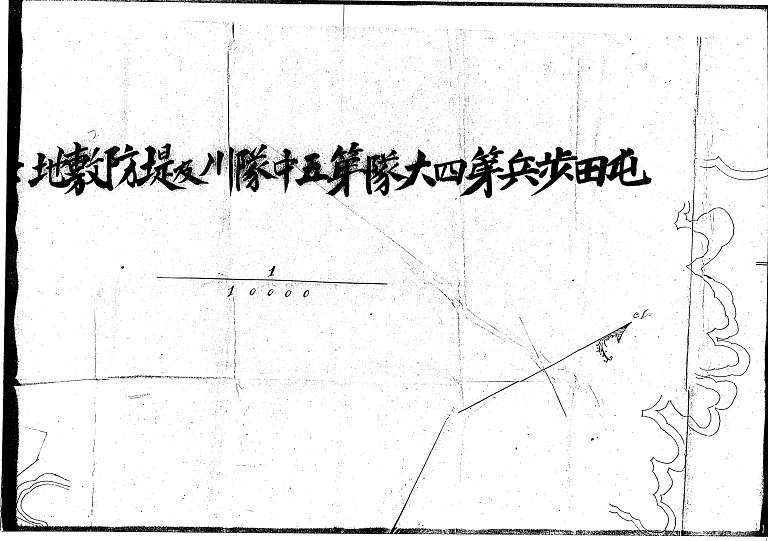 屯田歩兵第四大隊第五中隊川及堤防敷地
1
10000